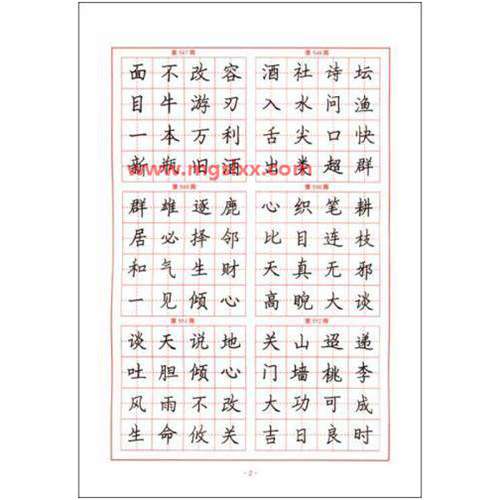 面不改容
目牛游刃
一本万利
新瓶旧酒
酒社诗坛
入水问渔
舌尖口快
出类超群
www.mgsxx.com
群雄逐鹿
居必择邻
和气生财
一见倾心
心织笔耕
比目连枝
天真无邪
高睨大谈
谈天说地
吐胆倾心
风雨不改
生命攸关
关山迢递
门墙桃李
大功可成
吉日良时
- 2 -